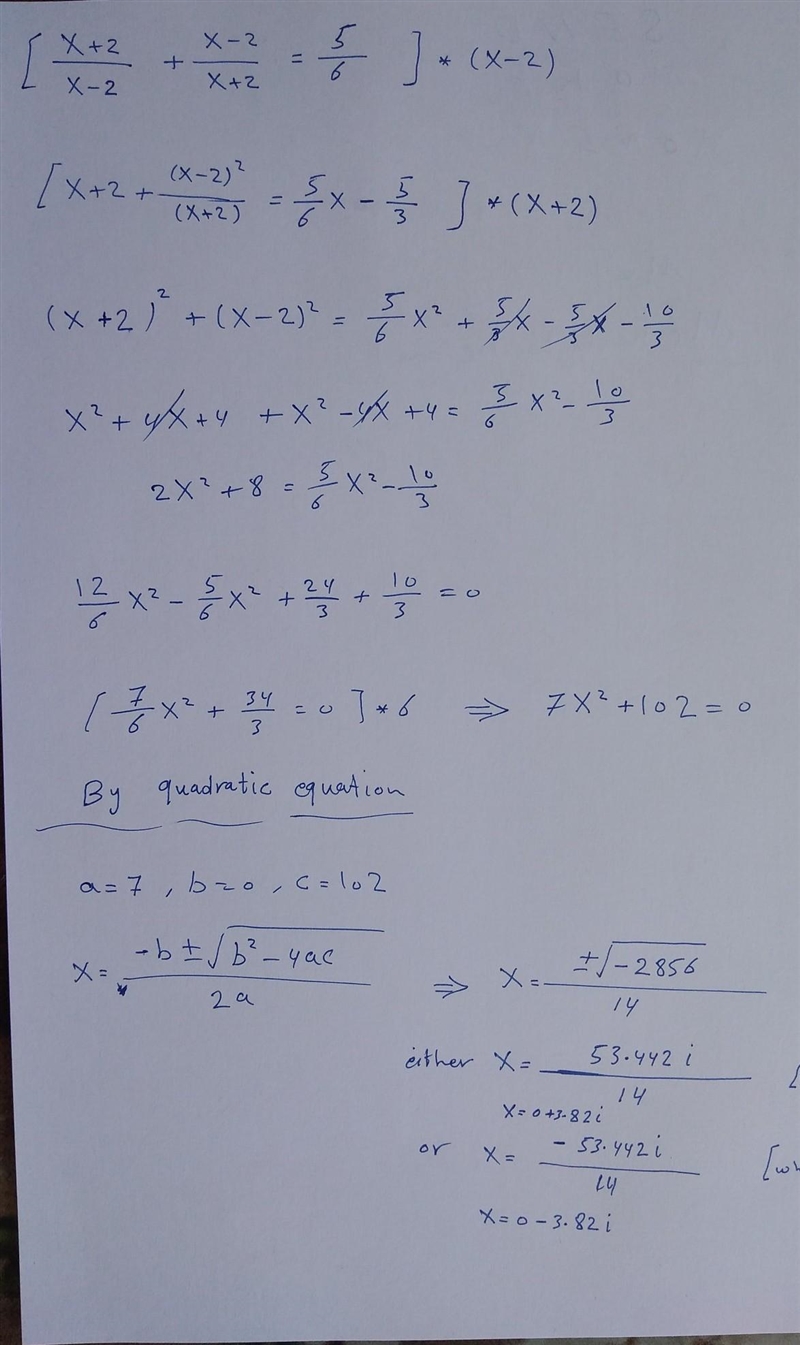 [ (x+2)/(x-2) + (x-2)/(x+2) = 5/6 ] * (x-2)
[ x+2 + (x-2)²/(x+2) = 5/6 x - 5/3 ] * (x+2)
(x+2)² + (x-2)² = 5/6 x² + 5/3 x - 5/3 x - 10/3
x² + 4x + 4 + x² - 4x + 4 = 5/6 x² - 10/3
2x² + 8 = 5/6 x² - 10/3
12/6 x² - 5/6 x² + 24/3 + 10/3 = 0
[ 7/6 x² + 34/3 = 0 ] * 6 ⇒ 7x² + 102 = 0
By quadratic equation
a=7, b=0, c=102
x = (-b ± √(b² - 4ac))/2a ⇒ x = ±√(-2856)/14
either x = 53.442 i/14 [
x = 0+3.82 i
or x = -53.442 i/14 [wh
x = 0 - 3.82 i